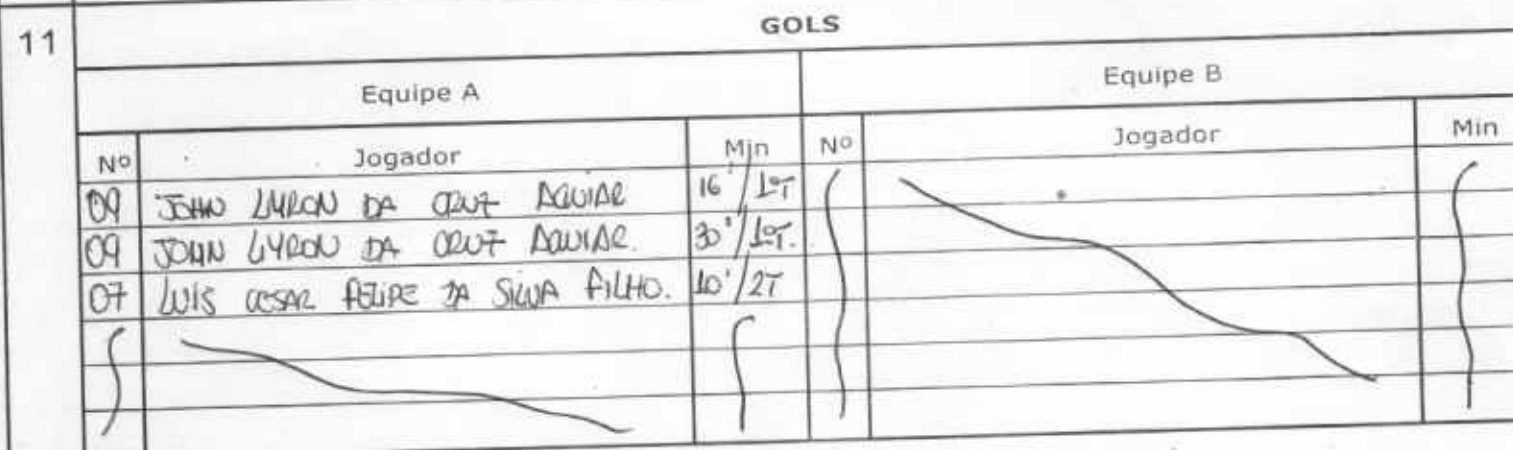 11
GOLS
Equipe A
Equipe B
Nº Jogador Min Nº Jogador Min
09 JOHN LYRON DA CRUZ AGUIAR 16'/1ºT
09 JOHN LYRON DA CRUZ AGUIAR. 30'/1ºT.
07 LUIS CESAR FELIPE DA SILVA FILHO. 10'/2T